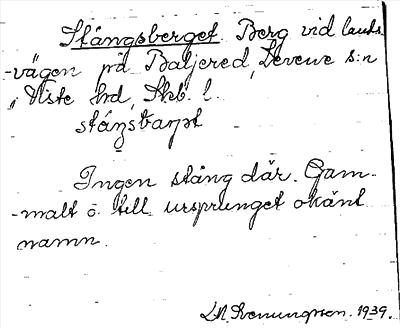 Stångsberget. Berg vid lands-
-vägen på Baljered, Levene s:n
i Viste hd, Skb. l.
stáŋsbærjət
Ingen stång där. Gam-
-malt o. till ursprunget okänt
namn.
1939.